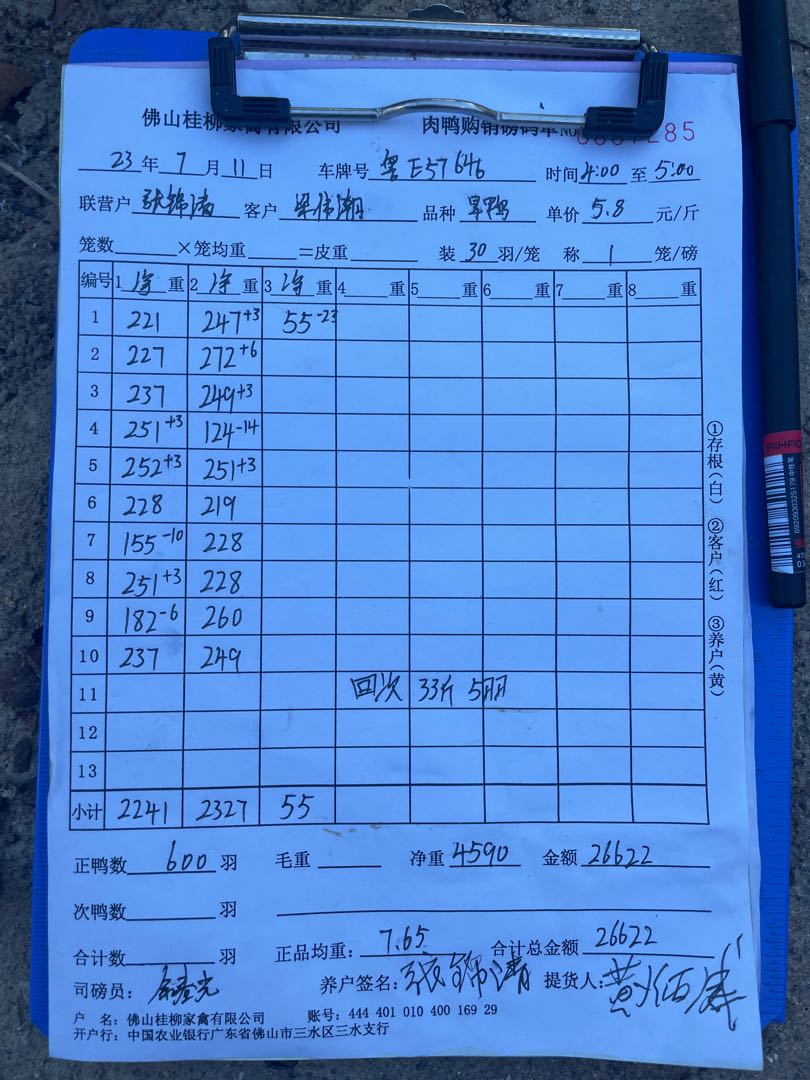 佛山桂柳家禽有限公司 肉鸭购销磅码单 NO 285
23年7月11日 车牌号 粤E57646 时间4:00至5:00
联营户 张锦清 客户 梁伟潮 品种 旱鸭 单价 5.8 元/斤
笼数 ×笼均重 =皮重 装 30 羽/笼 称 1 笼/磅
编号 1 净 重 2 净 重 3 净 重 4 重 5 重 6 重 7 重 8 重
1 221 247+3 55-23
2 227 272+6
3 237 249+3
4 251+3 124-14
5 252+3 251+3
6 228 219
7 155-10 228
8 251+3 228
9 182-6 260
10 237 249
11 回次 33斤 5羽
12
13
小计 2241 2327 55
①存根(白) ②客户(红) ③养户(黄)
正鸭数 600 羽 毛重 净重 4590 金额 26622
次鸭数 羽
合计数 羽 正品均重: 7.65 合计总金额 26622
司磅员: 养户签名: 张锦清 提货人:
户 名: 佛山桂柳家禽有限公司 账号: 444 401 010 400 169 29
开户行: 中国农业银行广东省佛山市三水区三水支行
AIHAO
6920930325179 中性笔